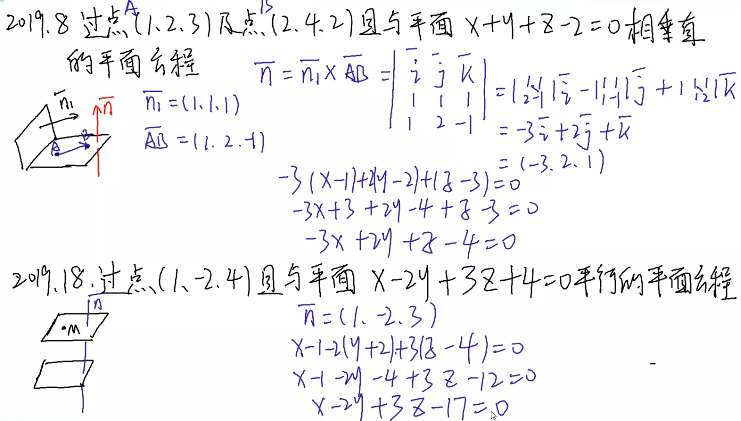 2019.8 过点A(1.2.3)及点B(2.4.2)且与平面 x+y+z-2=0相垂直
的平面方程
n̄=n̄₁×AB̄=|ī j̄ k̄; 1 1 1; 1 2 -1|=|1 1; 2 -1|ī-|1 1; 1 -1|j̄+|1 1; 1 2|k̄
n̄₁=(1.1.1)
AB̄=(1.2.-1)
=-3ī+2j̄+k̄
=(-3.2.1)
n̄₁ n̄
A B
-3(x-1)+2(y-2)+(z-3)=0
-3x+3+2y-4+z-3=0
-3x+2y+z-4=0
2019.18.过点(1.-2.4)且与平面 x-2y+3z+4=0平行的平面方程
n̄
·M
n̄=(1.-2.3)
x-1-2(y+2)+3(z-4)=0
x-1-2y-4+3z-12=0
x-2y+3z-17=0